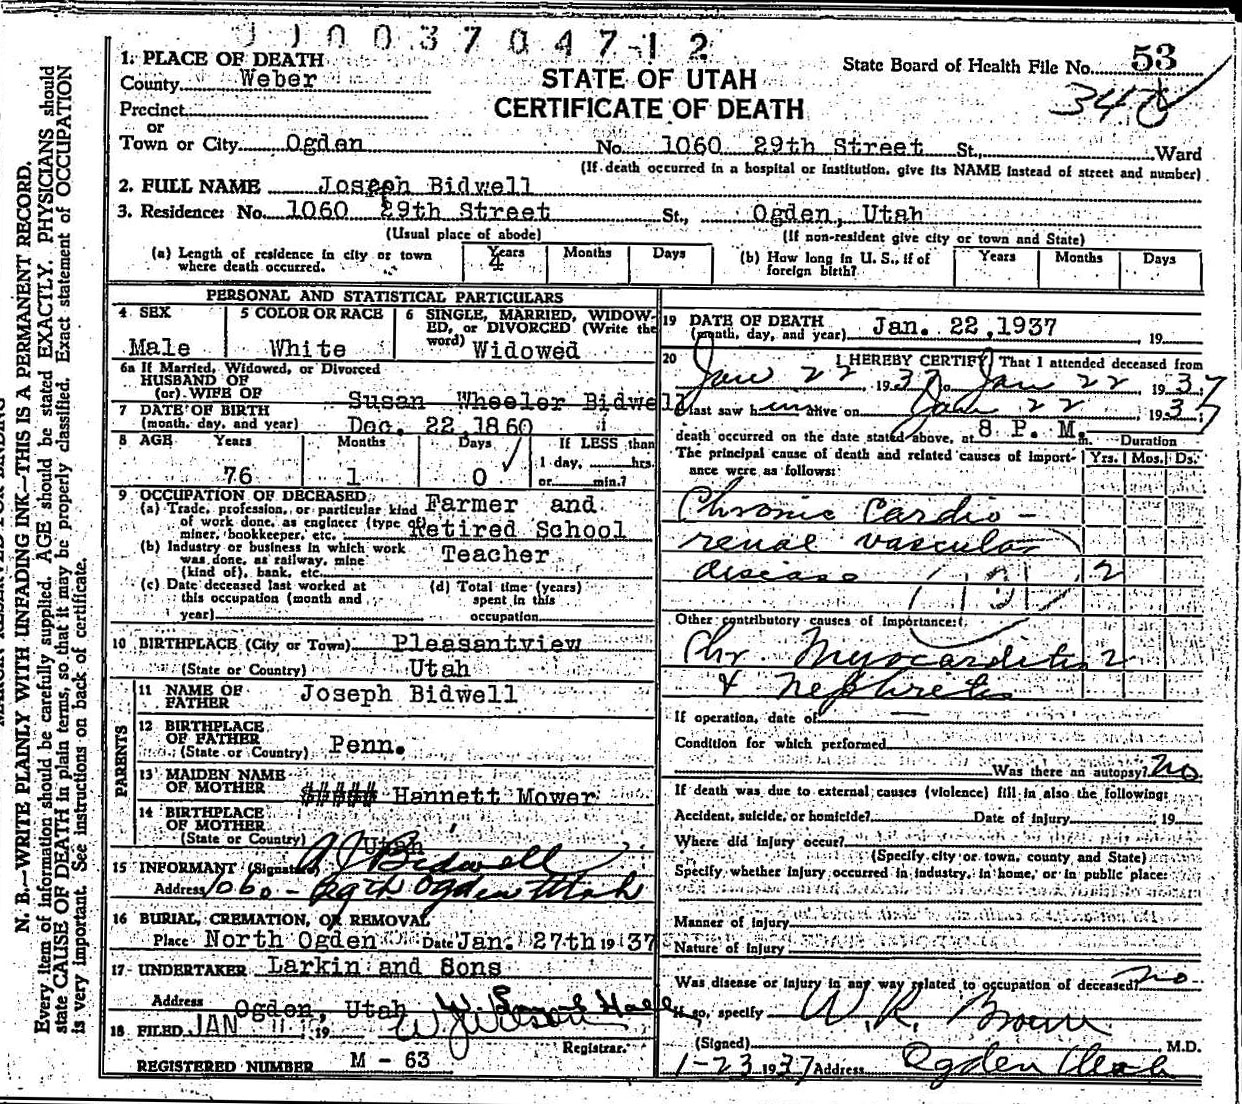 37047-12
1. PLACE OF DEATH
County Weber
STATE OF UTAH
CERTIFICATE OF DEATH
State Board of Health File No. 53
Precinct
or
Town or City Ogden No. 1060 29th Street St., Ward
(If death occurred in a hospital or institution, give its NAME instead of street and number)
2. FULL NAME Joseph Bidwell
3. Residence: No. 1060 29th Street St., Ogden, Utah
(Usual place of abode) (If non-resident give city or town and State)
(a) Length of residence in city or town where death occurred. Years 4 Months Days
(b) How long in U. S., if of foreign birth? Years Months Days
PERSONAL AND STATISTICAL PARTICULARS
4 SEX
Male
5 COLOR OR RACE
White
6 SINGLE, MARRIED, WIDOW-
ED, or DIVORCED (Write the
word) Widowed
6a If Married, Widowed, or Divorced
HUSBAND OF
(or) WIFE OF Susan Wheeler Bidwell
7 DATE OF BIRTH
(month, day, and year) Dec. 22, 1860
8 AGE Years Months Days If LESS than
1 day, hrs.
76 1 0 or min.?
9 OCCUPATION OF DECEASED
(a) Trade, profession, or particular kind Farmer and
of work done, as engineer (type of)
miner, bookkeeper, etc. Retired School
(b) Industry or business in which work Teacher
was done, as railway, mine
(kind of), bank, etc.
(c) Date deceased last worked at
this occupation (month and
year)
(d) Total time (years)
spent in this
occupation
10 BIRTHPLACE (City or Town) Pleasantview
(State or Country) Utah
PARENTS
11 NAME OF
FATHER Joseph Bidwell
12 BIRTHPLACE
OF FATHER
(State or Country) Penn.
13 MAIDEN NAME
OF MOTHER Hannett Mower
14 BIRTHPLACE
OF MOTHER
(State or Country) Utah
15 INFORMANT (Signature) A J Bidwell
Address 1060 - 29th Ogden Utah
16 BURIAL, CREMATION, OR REMOVAL
Place North Ogden Date Jan. 27th 1937
17 UNDERTAKER Larkin and Sons
Address Ogden, Utah
18 FILED JAN 19
Registrar.
REGISTERED NUMBER M - 63
19 DATE OF DEATH
(month, day, and year) Jan. 22, 1937 19
20 I HEREBY CERTIFY That I attended deceased from
Jan 22 1937 to Jan 22 1937
I last saw him alive on Jan 22 1937
death occurred on the date stated above, at 8 P. M. m. Duration
The principal cause of death and related causes of import-
ance were as follows: Yrs. Mos. Ds.
Chronic Cardio -
renal vascular
disease 2
131
Other contributory causes of importance:
Chr. Myocarditis 2
& Nephritis
If operation, date of
Condition for which performed
Was there an autopsy? no
If death was due to external causes (violence) fill in also the following:
Accident, suicide, or homicide? Date of injury 19
Where did injury occur?
(Specify city or town, county and State)
Specify whether injury occurred in industry, in home, or in public place:
Manner of Injury
Nature of Injury
Was disease or injury in any way related to occupation of deceased? no
If so, specify
(Signed) W. R. Brown M.D.
1-23 1937 Address Ogden Utah
N. B.—WRITE PLAINLY WITH UNFADING INK—THIS IS A PERMANENT RECORD.
Every item of information should be carefully supplied. AGE should be stated EXACTLY. PHYSICIANS should
state CAUSE OF DEATH in plain terms, so that it may be properly classified. Exact statement of OCCUPATION
is very important. See instructions on back of certificate.